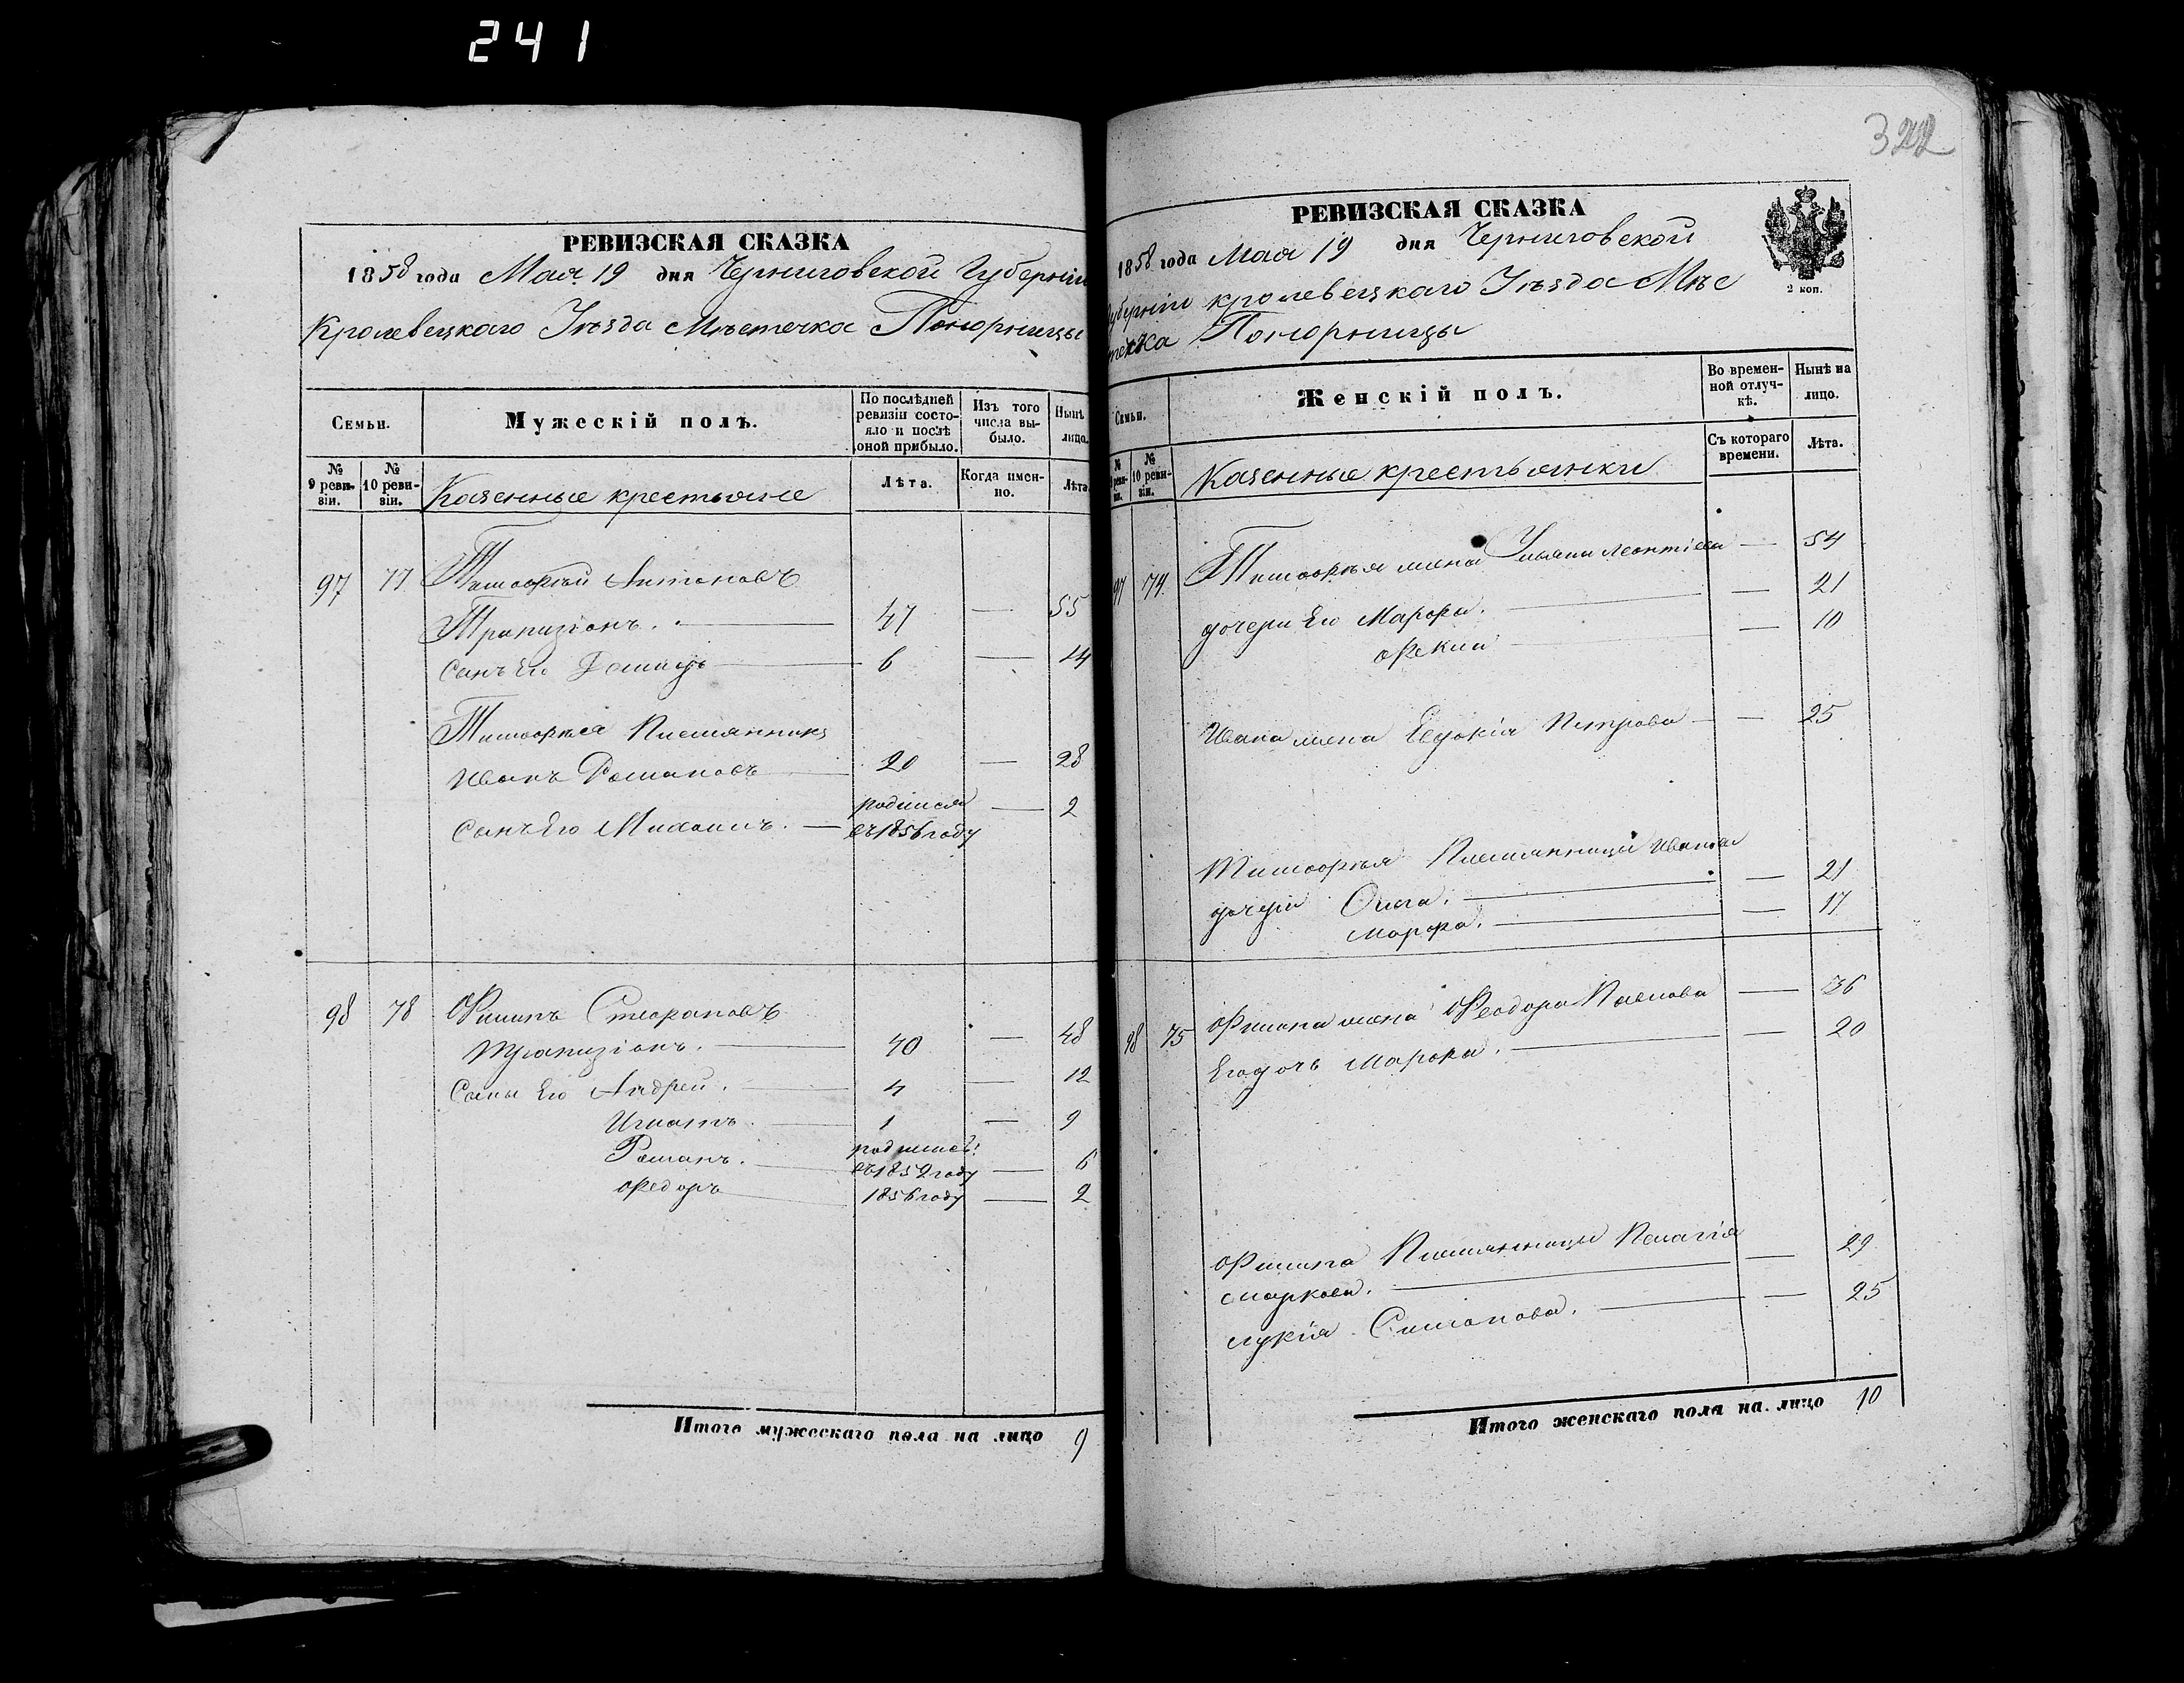 241
322
РЕВИЗСКАЯ СКАЗКА
1858 года Мая 19 дня Черниговской Губерніи
Кролевецкаго Уѣзда Мѣстечка Понорницы
Семьи.
Мужескій полъ.
По послѣдней ревизіи состояло и послѣ оной прибыло.
Изъ того числа выбыло.
Нынѣ лицо.
№ 9 ревизіи.
№ 10 ревизіи.
Казенные крестьяне
Лѣта.
Когда именно.
Лѣта.
97 77 Тимофей Антоновъ
47 — 55
Сынъ Его Демидъ 6 — 14
Тимофея Племянникъ
Иванъ Романовъ 20 — 28
Сынъ Его Михаилъ. родился въ 1856 году — 2
98 78 Филипъ Стефановъ
40 — 48
Сыны Его Андрей. 4 — 12
Игнатъ. 1 — 9
Романъ. родились: въ 1852 году — 6
Федоръ 1856 году — 2
Итого мужескаго пола на лицо 9
РЕВИЗСКАЯ СКАЗКА
1858 года Мая 19 дня Черниговской
Губерніи Кролевецкаго Уѣзда Мѣс
течка Понорницы
2 коп.
Семьи.
Женскій полъ.
Во временной отлучкѣ.
Нынѣ на лицо.
№ 10 ревизіи.
Казенные крестьянки
Съ котораго времени.
Лѣта.
97 74 Тимофея жена Ульяна Леонтіева — 54
дочери Его Марфа. — 21
— 10
Ивана жена Евдокія Петрова — 25
Тимофея Племянницы Ивана
дочери Ольга. — 21
Марфа. — 17
98 75 Филипа жена Феодора Павлова — 36
Его дочь Марфа. — 20
Филипа Племянницы Пелагія
Маркова. — 29
Лукія Симонова. — 25
Итого женскаго пола на лицо 10